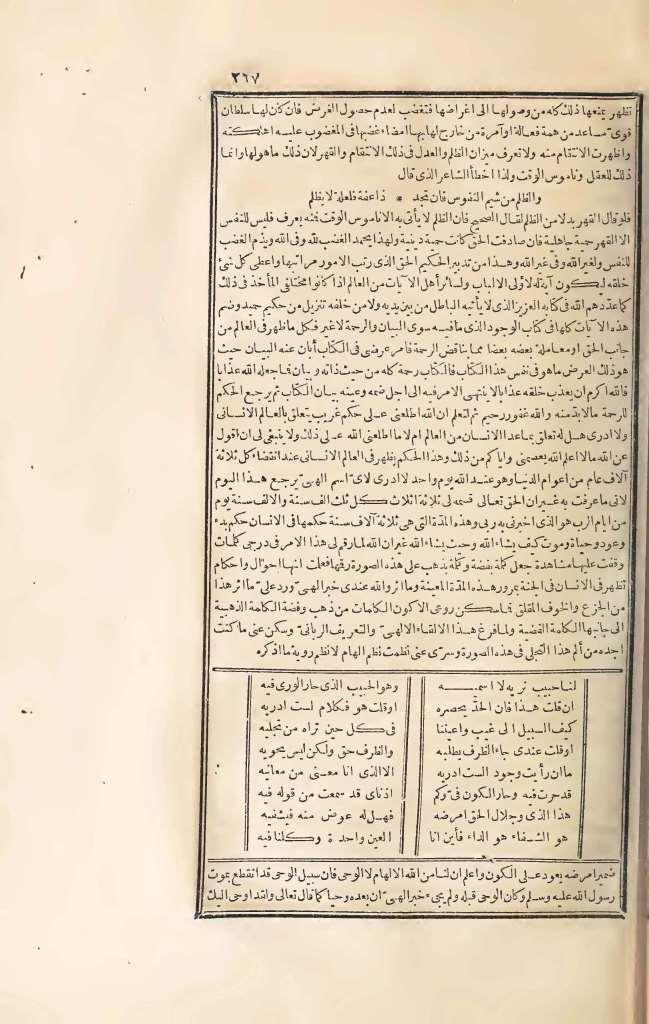 ٢٦٧
تظهر يمنعها ذلك كله من وصولها الى اغراضها فتغضب لعدم حصول الغرض فان كان لها سلطان
قوى مساعد من همة فعالة او آمرة من خارج لها بها امضاء غضبها فى المغضوب عليه اهلكته
واظهرت الانتقام منه ولا تعرف ميزان الظلم والعدل فى ذلك الانتقام والقهر لان ذلك ما هو لها وانما
ذلك للعقل وناموس الوقت ولذا اخطأ الشاعر الذى قال
والظلم من شيم النفوس فان تجد * ذا عفة فلعله لا يظلم
فلو قال القهر بدلا من الظلم لقال الصحيح فان الظلم لا يأتى به الا ناموس الوقت فمنه يعرف فليس للنفس
الا القهر حمية جاهلية فان صادفت الحق كانت حمية دينية ولهذا يحمد الغضب لله وفى الله ويذم الغضب
للنفس ولغير الله وفى غير الله وهذا من تدبير الحكيم الحق الذى رتب الامور مراتبها واعطى كل شئ
خلقه ليكون آية له لاولى الالباب ولسائر أهل الآيات من العالم اذا كانوا مختلفى المأخذ فى ذلك
كما عددهم الله فى كتابه العزيز الذى لا يأتيه الباطل من بين يديه ولا من خلفه تنزيل من حكيم حميد وضم
هذه الآيات كلها فى كتاب الوجود الذى ما فيه سوى البيان والرحمة لا غير فكل ما ظهر فى العالم من
جانب الحق او معاملة بعضه بعضا مما يناقض الرحمة فامر عرضى فى الكتاب أبان عنه البيان حيث
هو ذلك العرض ما هو فى نفس هذا الكتاب فالكتاب رحمة كله من حيث ذاته وبيان فما جعله الله عذابا
فالله اكرم ان يعذب خلقه عذابا لا ينتهى الامر فيه الى اجل ضمه وعينه بيان الكتاب ثم يرجع الحكم
للرحمة ما لا بد منه والله غفور رحيم ثم لتعلم ان الله اطلعنى على حكم غريب يتعلق بالعالم الانسانى
ولا ادرى هل له تعلق بما عدا الانسان من العالم ام لا ما اطلعنى الله على ذلك ولا ينبغى لى ان اقول
عن الله ما لا اعلم الله يعصمنى واياكم من ذلك وهذا الحكم يظهر فى العالم الانسانى عند انقضاء كل ثلاثة
آلاف عام من اعوام الدنيا وهو عند الله يوم واحد لا ادرى لاى اسم الهى يرجع هذا اليوم
لانى ما عرفت به غير ان الحق تعالى قسمه لى ثلاثة اثلاث كل ثلث الف سنة والالف سنة يوم
من ايام الرب هو الذى اخبرنى به ربى وهذه المدة التى هى ثلاثة آلاف سنة حكمها فى الانسان حكم بدء
وعود وحياة وموت كيف يشاء الله وحيث يشاء الله غير ان الله لما رقم لى هذا الامر فى درجى كلمات
وقفت عليها مشاهدة جعل كلمة بفضة وكلمة بذهب على هذه الصورة رقما فعلت انها احوال واحكام
تظهر فى الانسان فى الجنة بمرور هذه المدة المعينة وما اثر والله عندى خبر الهى ورد على ما اثر هذا
من الجزع والخوف المقلق فما سكن روعى الا كون الكلمات من ذهب وفضة الكلمة الذهبية
الى جانبها الكلمة الفضية ولما فرغ هذا الالقاء الالهى والتعريف الربانى وسكن عنى ما كنت
اجده من ألم هذا التجلى فى هذه الصورة وسرى عنى نظمت نظم الهام لا نظم روية ما اذكره
لنا حبيب نزيه لا اسميه وهو الحبيب الذى حار الورى فيه
ان قلت هذا فان الحد يحصره اوقلت هو فكلام لست ادريه
كيف السبيل الى غيب واعيننا فى كل حين تراه من تجليه
اوقلت عندى جاء الظرف يطلبه والظرف حق ولكن ليس يحويه
ما ان رأيت وجود الست ادريه الا الذى انا معنى من معانيه
قد حرت فيه وحار الكون فى وكم اذناى قد سمعت من قوله فيه
هذا الذى وجلال الحق امرضه فهل له عوض منه فيشفيه
هو الشفاء هو الداء فأين انا العين واحدة وكلنا فيه
ضمير امرضه يعود على الكون واعلم ان لنا من الله الالهام لا الوحى فان سبيل الوحى قد انقطع بموت
رسول الله عليه وسلم وكان الوحى قبله ولم يجىء خبر الهى ان بعده وحيا كما قال تعالى ولقد اوحى اليك